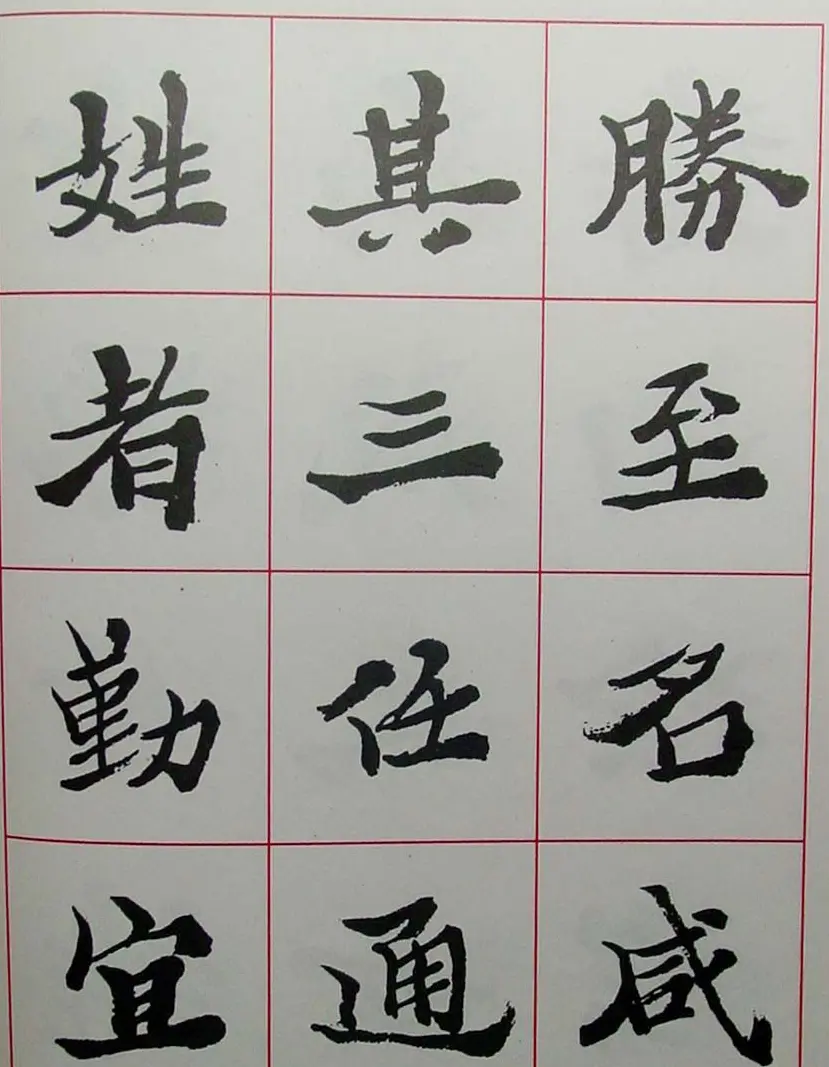 勝至名咸
其三任通
姓者勤宜